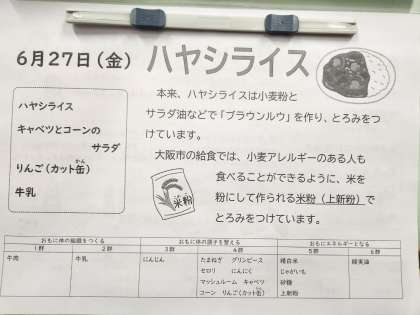 6月27日(金) ハヤシライス
ハヤシライス
キャベツとコーンの
サラダ
りんご(カット缶)
かん
牛乳
本来、ハヤシライスは小麦粉と
サラダ油などで「ブラウンルウ」を作り、とろみをつ
けています。
大阪市の給食では、小麦アレルギーのある人も
食べることができるように、米を
粉にして作られる米粉(上新粉)で
とろみをつけています。
米粉
おもに体の組織をつくる おもに体の調子を整える おもにエネルギーとなる
1群 2群 3群 4群 5群 6群
牛肉 牛乳 にんじん たまねぎ グリンピース 精白米 綿実油
セロリ にんにく じゃがいも
マッシュルーム キャベツ 砂糖
コーン りんご(カット缶) 上新粉